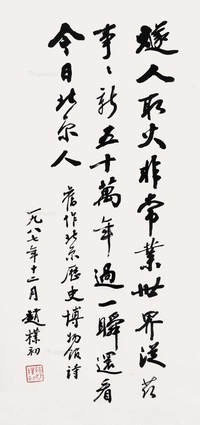 燧人取火非常業世界從兹
事々新五十萬年過一瞬還看
今日北京人
舊作北京歷史博物館詩
一九八七年十二月 趙樸初